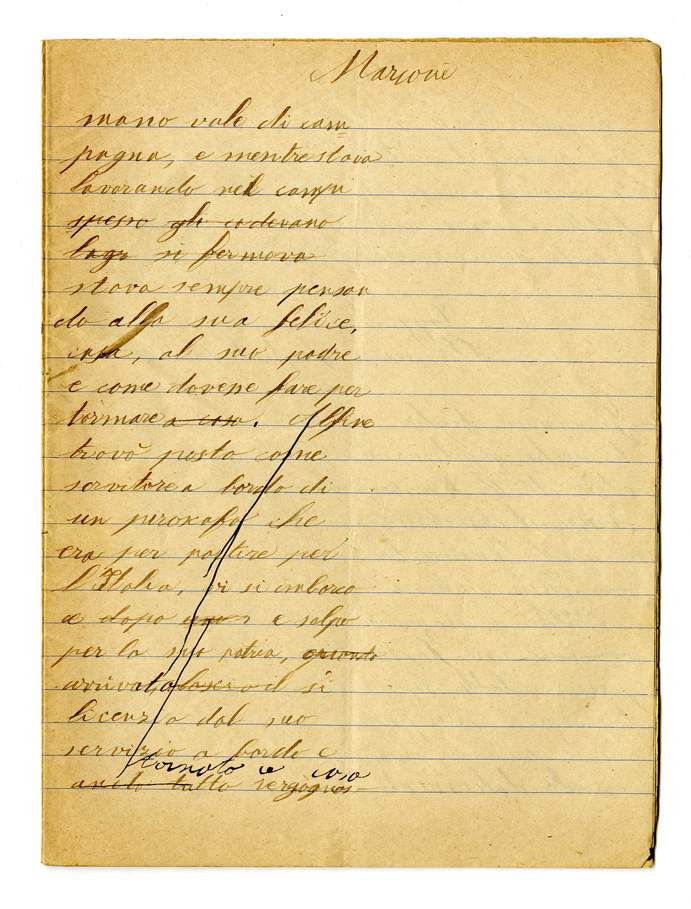 Marconi
mano vale di cam
pagna, e mentre stava
lavorando nel campu
spesso gli cadevano
lagr si fermava
stava sempre pensan
do alla sua felice,
casa, al suo padre
e come dovesse fare per
tormare a casa. Alfine
trovò posto come
servitore a bordo di
un piroscafo che
era per partire per
l'Italia, vi si imbarco
e dopo e salpo
per la sua patria, quando
arrivato il si
licenzia dal suo
servizio a bordo e
tornato a casa
ando tutto vergognos-